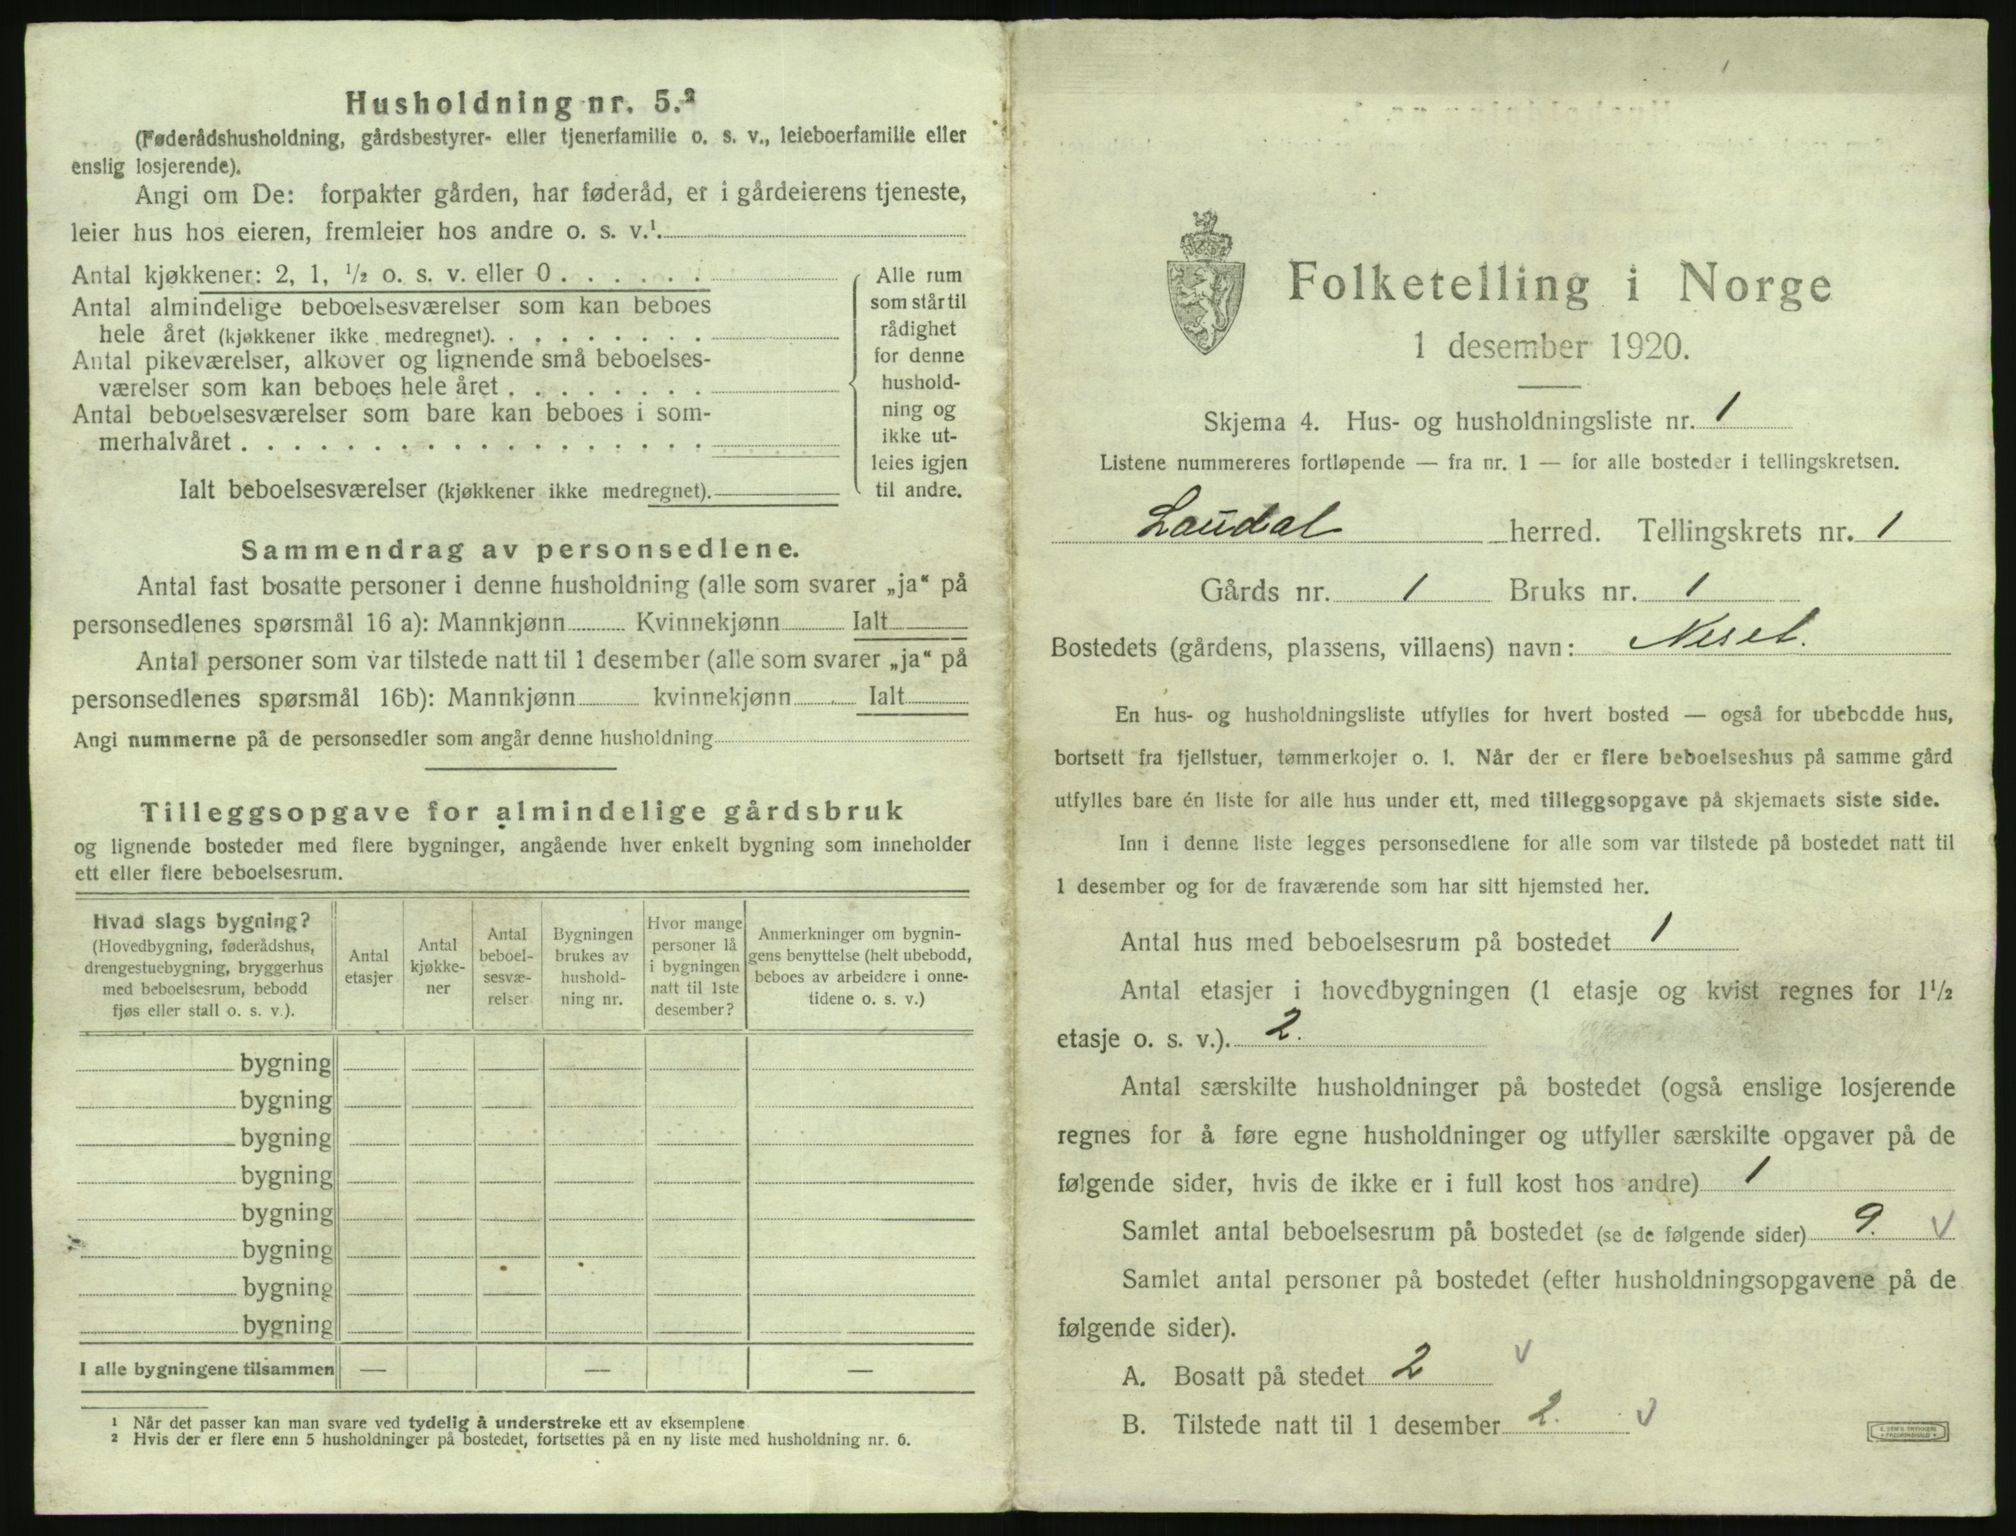 Husholdning nr. 5.²
(Føderådshusholdning, gårdsbestyrer- eller tjenerfamilie o. s. v., leieboerfamilie eller
enslig losjerende).
Angi om De: forpakter gården, har føderåd, er i gårdeierens tjeneste,
leier hus hos eieren, fremleier hos andre o. s. v.¹.
Antal kjøkkener: 2, 1, ½ o. s. v. eller 0 . . . . . .
Antal almindelige beboelsesværelser som kan beboes
hele året (kjøkkener ikke medregnet). . . . . . . . .
Antal pikeværelser, alkover og lignende små beboelses-
værelser som kan beboes hele året . . . . . . . .
Antal beboelsesværelser som bare kan beboes i som-
merhalvåret . . . . . . . . . . . . . . . . . .
Ialt beboelsesværelser (kjøkkener ikke medregnet).
Alle rum
som står til
rådighet
for denne
hushold-
ning og
ikke ut-
leies igjen
til andre.
Sammendrag av personsedlene.
Antal fast bosatte personer i denne husholdning (alle som svarer „ja“ på
personsedlenes spørsmål 16 a): Mannkjønn Kvinnekjønn Ialt
Antal personer som var tilstede natt til 1 desember (alle som svarer „ja“ på
personsedlenes spørsmål 16b): Mannkjønn kvinnekjønn Ialt
Angi nummerne på de personsedler som angår denne husholdning
Tilleggsopgave for almindelige gårdsbruk
og lignende bosteder med flere bygninger, angående hver enkelt bygning som inneholder
ett eller flere beboelsesrum.
Hvad slags bygning?
(Hovedbygning, føderådshus,
drengestuebygning, bryggerhus
med beboelsesrum, bebodd
fjøs eller stall o. s. v.).
Antal
etasjer
Antal
kjøkke-
ner
Antal
beboel-
sesvæ-
relser
Bygningen
brukes av
hushold-
ning nr.
Hvor mange
personer lå
i bygningen
natt til 1ste
desember?
Anmerkninger om bygnin-
gens benyttelse (helt ubebodd,
beboes av arbeidere i onne-
tidene o. s. v.)
bygning
bygning
bygning
bygning
bygning
bygning
bygning
bygning
I alle bygningene tilsammen — — —
¹ Når det passer kan man svare ved tydelig å understreke ett av eksemplene.
² Hvis der er flere enn 5 husholdninger på bostedet, fortsettes på en ny liste med husholdning nr. 6.
Folketelling i Norge
1 desember 1920.
Skjema 4. Hus- og husholdningsliste nr. 1
Listene nummereres fortløpende — fra nr. 1 — for alle bosteder i tellingskretsen.
Laudal herred. Tellingskrets nr. 1
Gårds nr. 1 Bruks nr. 1
Bostedets (gårdens, plassens, villaens) navn: Neset.
En hus- og husholdningsliste utfylles for hvert bosted — også for ubebodde hus,
bortsett fra fjellstuer, tømmerkojer o. l. Når der er flere beboelseshus på samme gård
utfylles bare én liste for alle hus under ett, med tilleggsopgave på skjemaets siste side.
Inn i denne liste legges personsedlene for alle som var tilstede på bostedet natt til
1 desember og for de fraværende som har sitt hjemsted her.
Antal hus med beboelsesrum på bostedet 1
Antal etasjer i hovedbygningen (1 etasje og kvist regnes for 1½
etasje o. s. v.). 2.
Antal særskilte husholdninger på bostedet (også enslige losjerende
regnes for å føre egne husholdninger og utfyller særskilte opgaver på de
følgende sider, hvis de ikke er i full kost hos andre) 1
Samlet antal beboelsesrum på bostedet (se de følgende sider) 9. V
Samlet antal personer på bostedet (efter husholdningsopgavene på de
følgende sider).
A. Bosatt på stedet 2 V
B. Tilstede natt til 1 desember 2. V